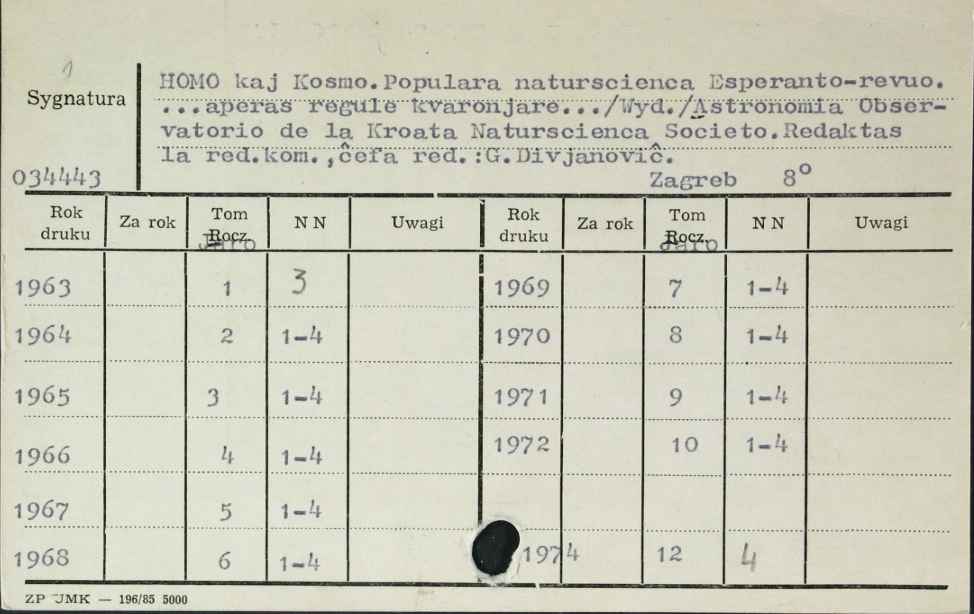 1
Sygnatura
034443
HOMO kaj Kosmo.Populara naturscienca Esperanto-revuo.
...aperas regule kvaronjare.../Wyd./Astronomia Obser-
vatorio de la Kroata Naturscienca Societo.Redaktas
la red.kom.,ĉefa red.:G.Divjanoviĉ.
Zagreb 8°
Rok druku Za rok Tom Rocz. Jaro N N Uwagi Rok druku Za rok Tom Rocz. Jaro N N Uwagi
1963 1 3 1969 7 1-4
1964 2 1-4 1970 8 1-4
1965 3 1-4 1971 9 1-4
1966 4 1-4 1972 10 1-4
1967 5 1-4
1968 6 1-4 1974 12 4
ZP UMK — 196/85 5000